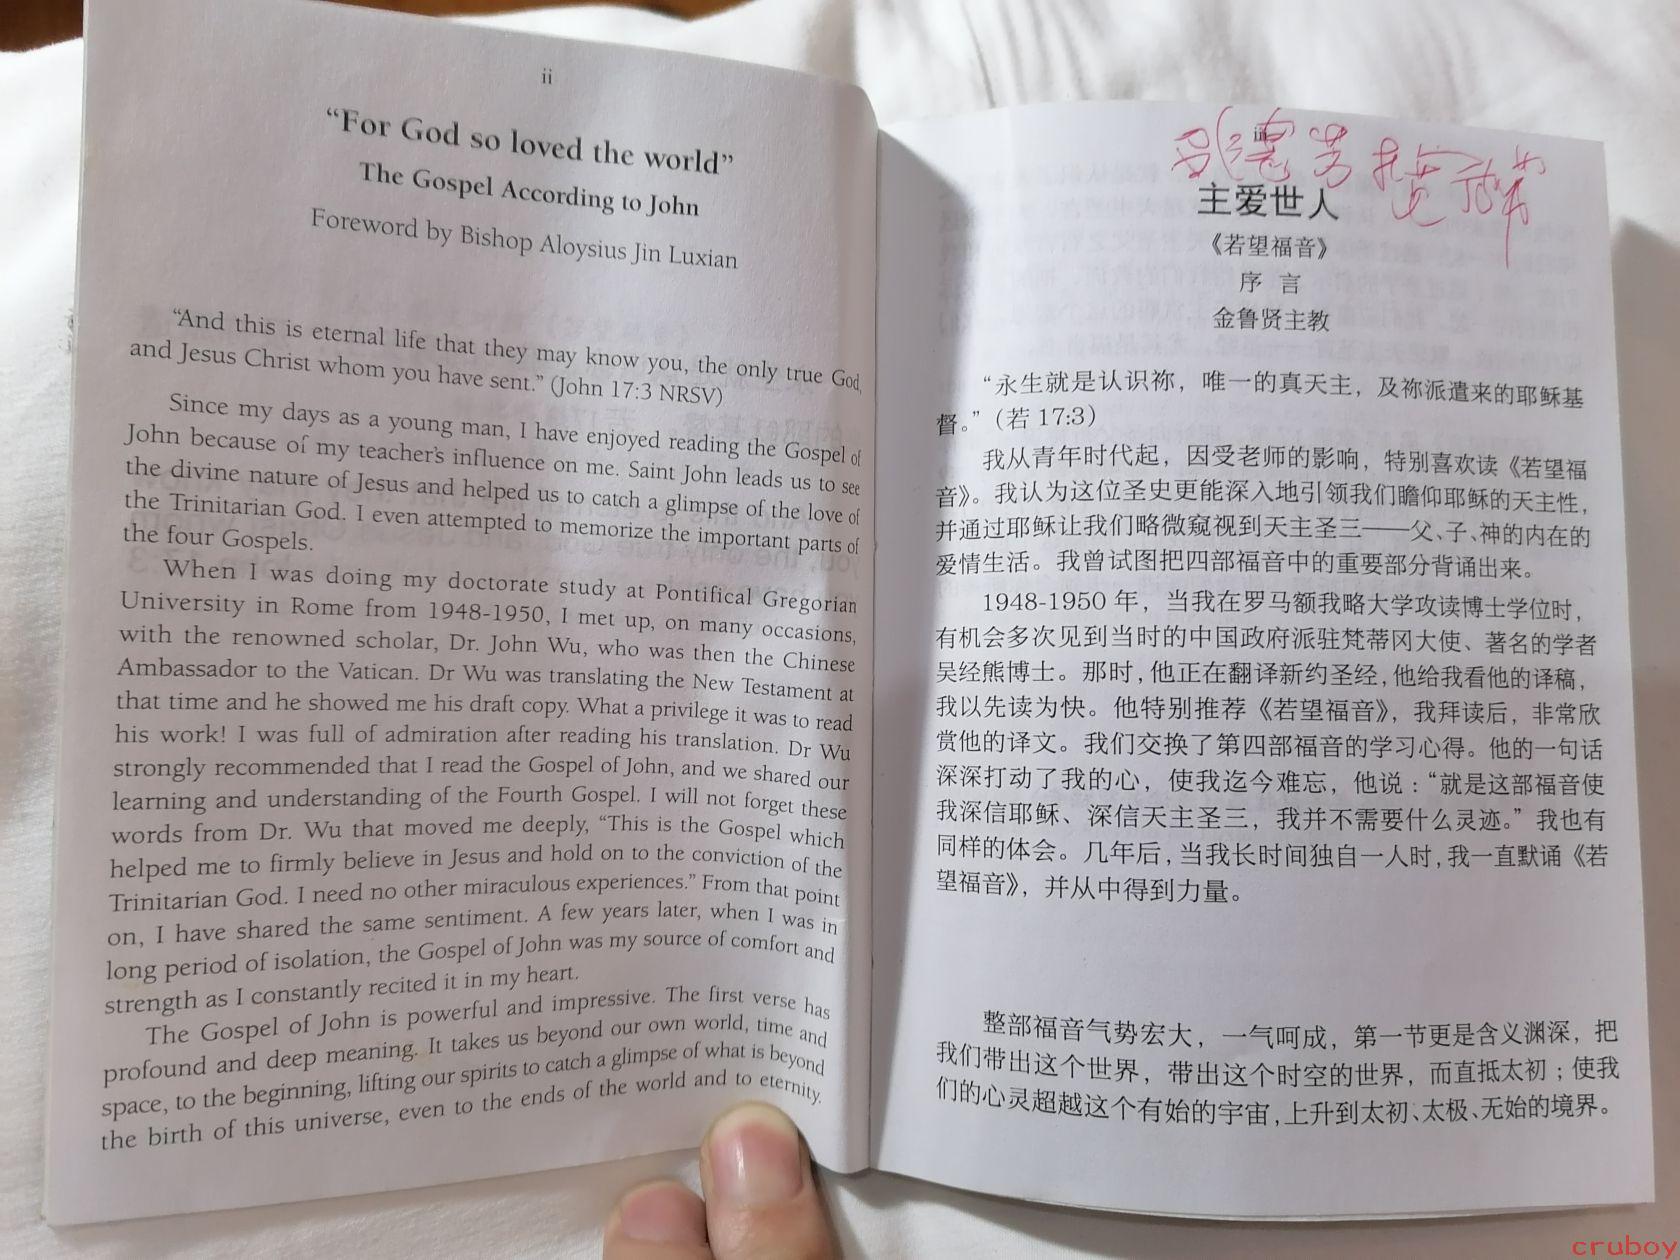 ii
“For God so loved the world”
The Gospel According to John
Foreword by Bishop Aloysius Jin Luxian
“And this is eternal life that they may know you, the only true God,
and Jesus Christ whom you have sent.” (John 17:3 NRSV)
Since my days as a young man, I have enjoyed reading the Gospel of
John because of my teacher's influence on me. Saint John leads us to see
the divine nature of Jesus and helped us to catch a glimpse of the love of
the Trinitarian God. I even attempted to memorize the important parts of
the four Gospels.
When I was doing my doctorate study at Pontifical Gregorian
University in Rome from 1948-1950, I met up, on many occasions,
with the renowned scholar, Dr. John Wu, who was then the Chinese
Ambassador to the Vatican. Dr Wu was translating the New Testament at
that time and he showed me his draft copy. What a privilege it was to read
his work! I was full of admiration after reading his translation. Dr Wu
strongly recommended that I read the Gospel of John, and we shared our
learning and understanding of the Fourth Gospel. I will not forget these
words from Dr. Wu that moved me deeply, “This is the Gospel which
helped me to firmly believe in Jesus and hold on to the conviction of the
Trinitarian God. I need no other miraculous experiences.” From that point
on, I have shared the same sentiment. A few years later, when I was in
long period of isolation, the Gospel of John was my source of comfort and
strength as I constantly recited it in my heart.
The Gospel of John is powerful and impressive. The first verse has
profound and deep meaning. It takes us beyond our own world, time and
space, to the beginning, lifting our spirits to catch a glimpse of what is beyond
the birth of this universe, even to the ends of the world and to eternity.
iii
主爱世人
《若望福音》
序 言
金鲁贤主教
“永生就是认识祢，唯一的真天主，及祢派遣来的耶稣基
督。”（若 17:3）
我从青年时代起，因受老师的影响，特别喜欢读《若望福
音》。我认为这位圣史更能深入地引领我们瞻仰耶稣的天主性，
并通过耶稣让我们略微窥视到天主圣三——父、子、神的内在的
爱情生活。我曾试图把四部福音中的重要部分背诵出来。
1948-1950 年，当我在罗马额我略大学攻读博士学位时，
有机会多次见到当时的中国政府派驻梵蒂冈大使、著名的学者
吴经熊博士。那时，他正在翻译新约圣经，他给我看他的译稿，
我以先读为快。他特别推荐《若望福音》，我拜读后，非常欣
赏他的译文。我们交换了第四部福音的学习心得。他的一句话
深深打动了我的心，使我迄今难忘，他说：“就是这部福音使
我深信耶稣、深信天主圣三，我并不需要什么灵迹。”我也有
同样的体会。几年后，当我长时间独自一人时，我一直默诵《若
望福音》，并从中得到力量。
整部福音气势宏大，一气呵成，第一节更是含义渊深，把
我们带出这个世界，带出这个时空的世界，而直抵太初；使我
们的心灵超越这个有始的宇宙，上升到太初、太极、无始的境界。
cruboy